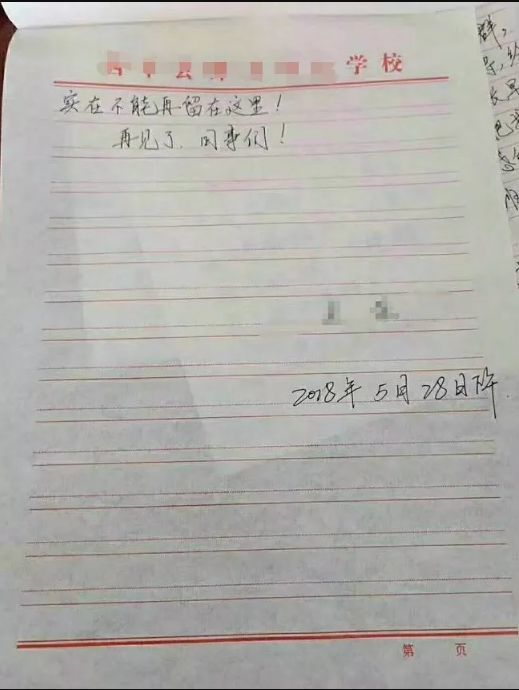 学校
实在不能再留在这里！
再见了，同事们！
2018年5月28日下午
第 页